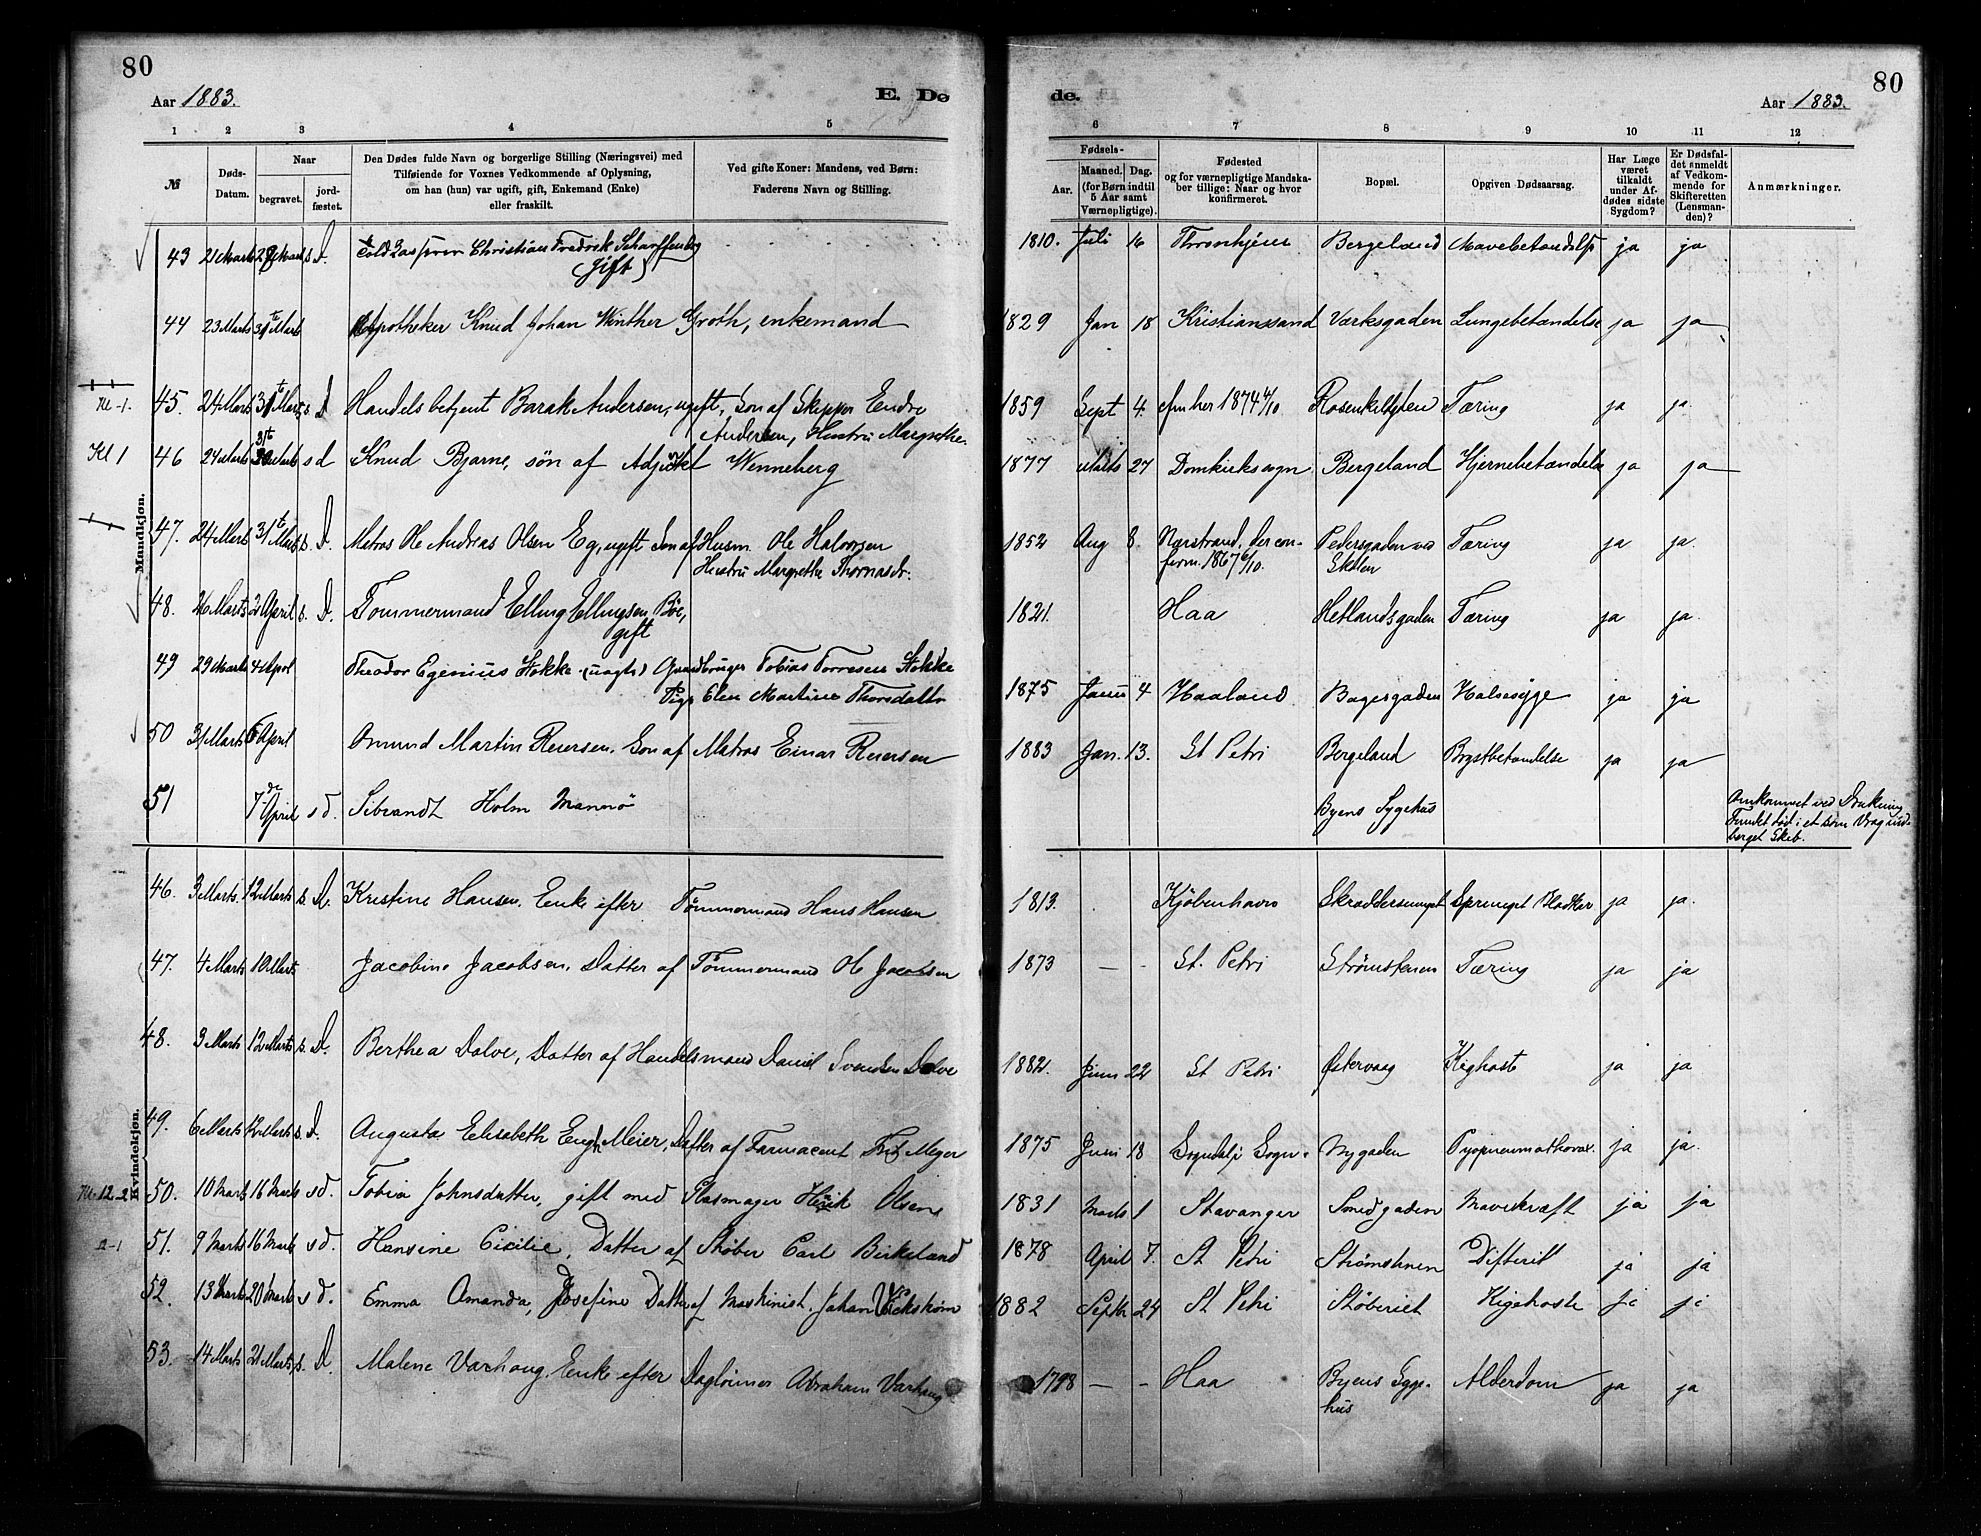 80
80
Aar 1883.
E. Dø
de.
Aar 1883.
1 2 3 4 5 6 7 8 9 10 11 12
№
Døds-Datum.
Naar
begravet.
jord-fæstet.
Den Dødes fulde Navn og borgerlige Stilling (Næringsvei) med
Tilføiende for Voxnes Vedkommende af Oplysning,
om han (hun) var ugift, gift, Enkemand (Enke)
eller fraskilt.
Ved gifte Koner: Mandens, ved Børn:
Faderens Navn og Stilling.
Fødsels-
Aar.
Maaned. Dag.
(for Børn indtil
5 Aar samt
Værnepligtige).
Fødested
og for værnepligtige Mandska-
ber tillige: Naar og hvor
konfirmeret.
Bopæl.
Opgiven Dødsaarsag.
Har Læge
været
tilkaldt
under Af-
dødes sidste
Sygdom?
Er Dødsfal-
det anmeldt
af Vedkom-
mende for
Skifteretten
(Lensman-
den)?
Anmærkninger.
Mandkjøn.
43 21 Marts 28 Marts s D. Christian Fredrik Scharffenberg 1810. Juli 16 Thronhjem Bergeland Mavebetændelse ja ja
(gift)
44 23 Marts 31te Marts Apotheker Knud Johan Winther Groth, enkemand 1829 Jan 18 Kristianssand Værksgaden Lungebetændelse ja ja
Kl-1. 45. 24 Marts 31te Marts s. D Handelsbetjent Barak Andersen, ugift, Søn af Skipper Endre 1859 Sept 4. 1874 4/10 Tæring ja ja.
Andersen, Hustru Margrethe.
Kl 1 46 24 Marts 31te Marts s d Knud Bjarne, søn af Adjunkt Wenneberg 1877 Marts 27 Domkirkesogn. Bergeland Hjernebetændelse ja ja
47. 24 Marts 31te Marts s. D. Matros Ole Andreas Olsen Eg, ugift Søn af Husm. Ole Halvorsen 1852 Aug 8. Nærstrand, der con- Pedersgaden ved Tæring ja ja.
Hustru Margrethe Thomasdr. firm. 1867 6/10.
48. 26 Marts 2 April s. D. Tømmermand Elling Ellingsen Bøe, 1821. Haa Hetlandsgaden Tæring ja ja.
gift
49 29 Marts 4 April Theodor Egenius Stokke (uægte) Gaardbruger Tobias Torresen Stokke
Pige Elen Martine Thorsdatter 1875 4 Haaland Bagergaden Halssyge ja ja
50 31 Marts 6 April Omund Martin Reiersen, Søn af Matros Einar Reiersen 1883 Jan. 13. St Petri Bergeland Brystbetændelse ja ja
51 7de April s d. Sibrandt Holm Mannø Byens Sygehus
Omkommet ved Drukning
Fundet død i et som Vrag ind-
berget Skib.
Kvindekjøn.
46. 3 Marts. 12 Marts s. D. Kristine Hansen. Enke efter Tømmermand Hans Hansen 1813. Kjøbenhavn Sprunget Blodkar ja ja.
47. 4 Marts 10 Marts Jacobine Jacobsen. Datter af Tømmermand Ole Jacobsen 1873 — - St. Petri Strømstenen Tæring ja ja
48. 3 Marts 12 Marts s. D. Berthea Dalve, Datter af Handelsmand Daniel Svendsen Dalve 1882. Juni 22 St Petri Østervaag Kighoste ja ja
49. 6 Marts 12 Marts s. D. Augusta Elisabeth Engh Meier, Datter af Farmaceut Meyer 1875 Juni 18 Sogndals Sogn. Nygaden Pyopneumothorax. ja ja.
Kl-12-2 50. 10 Marts 16 Marts s d. Tobia Johnsdatter, gift med Henrik Olsen 1831 Marts 1 Stavanger Smedgaden Mavekræft ja ja
51. 9 Marts 16 Marts s d. Hansine Cicilie, Datter af Støber Carl Birkeland 1878 April 7. St Petri Strømstenen Difterit ja ja
52. 13 Marts 20 Marts s d. Emma Amanda, Josefine Datter af Maskinist. Johan Vickstrøm 1882 Septbr 24 St Petri Støberiet Kigehoste ja ja
53. 14 Marts 21 Marts s. D Malene Varhaug. Enke efter Dagleier Abraham Varhaug 1798 — - Haa Byens Syge- Alderdom ja ja
hus